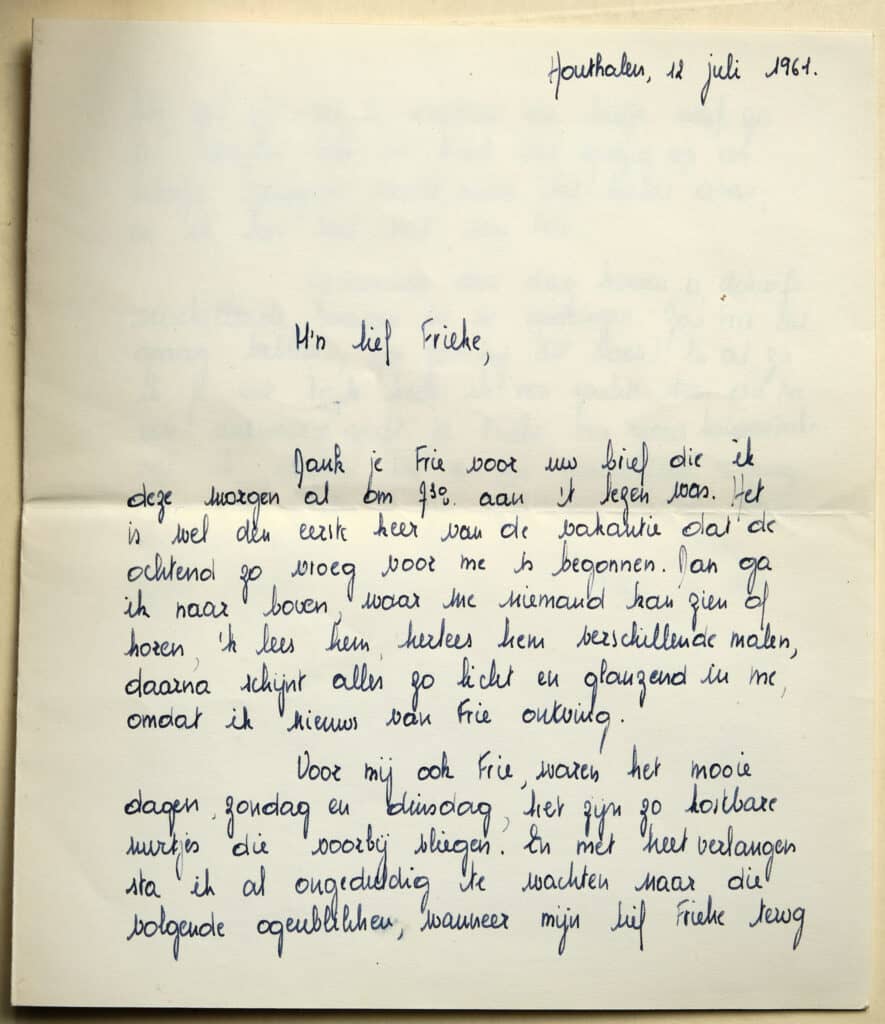 Houthalen, 12 juli 1961.
M'n lief Frieke,
Dank je Frie voor uw brief die ik
deze morgen al om 7³⁰ aan 't lezen was. Het
is wel den eerste keer van de vakantie dat de
ochtend zo vroeg voor me is begonnen. Dan ga
ik naar boven, waar me niemand kan zien of
horen, 'k lees hem, herlees hem verschillende malen,
daarna schijnt alles zo licht en glanzend in me,
omdat ik nieuws van Frie ontving.
Voor mij ook Frie, waren het mooie
dagen, zondag en dinsdag, het zijn zo kostbare
uurtjes die voorbij vliegen. En met heet verlangen
sta ik al ongeduldig te wachten naar die
volgende ogenblikken, wanneer mijn lief Frieke terug